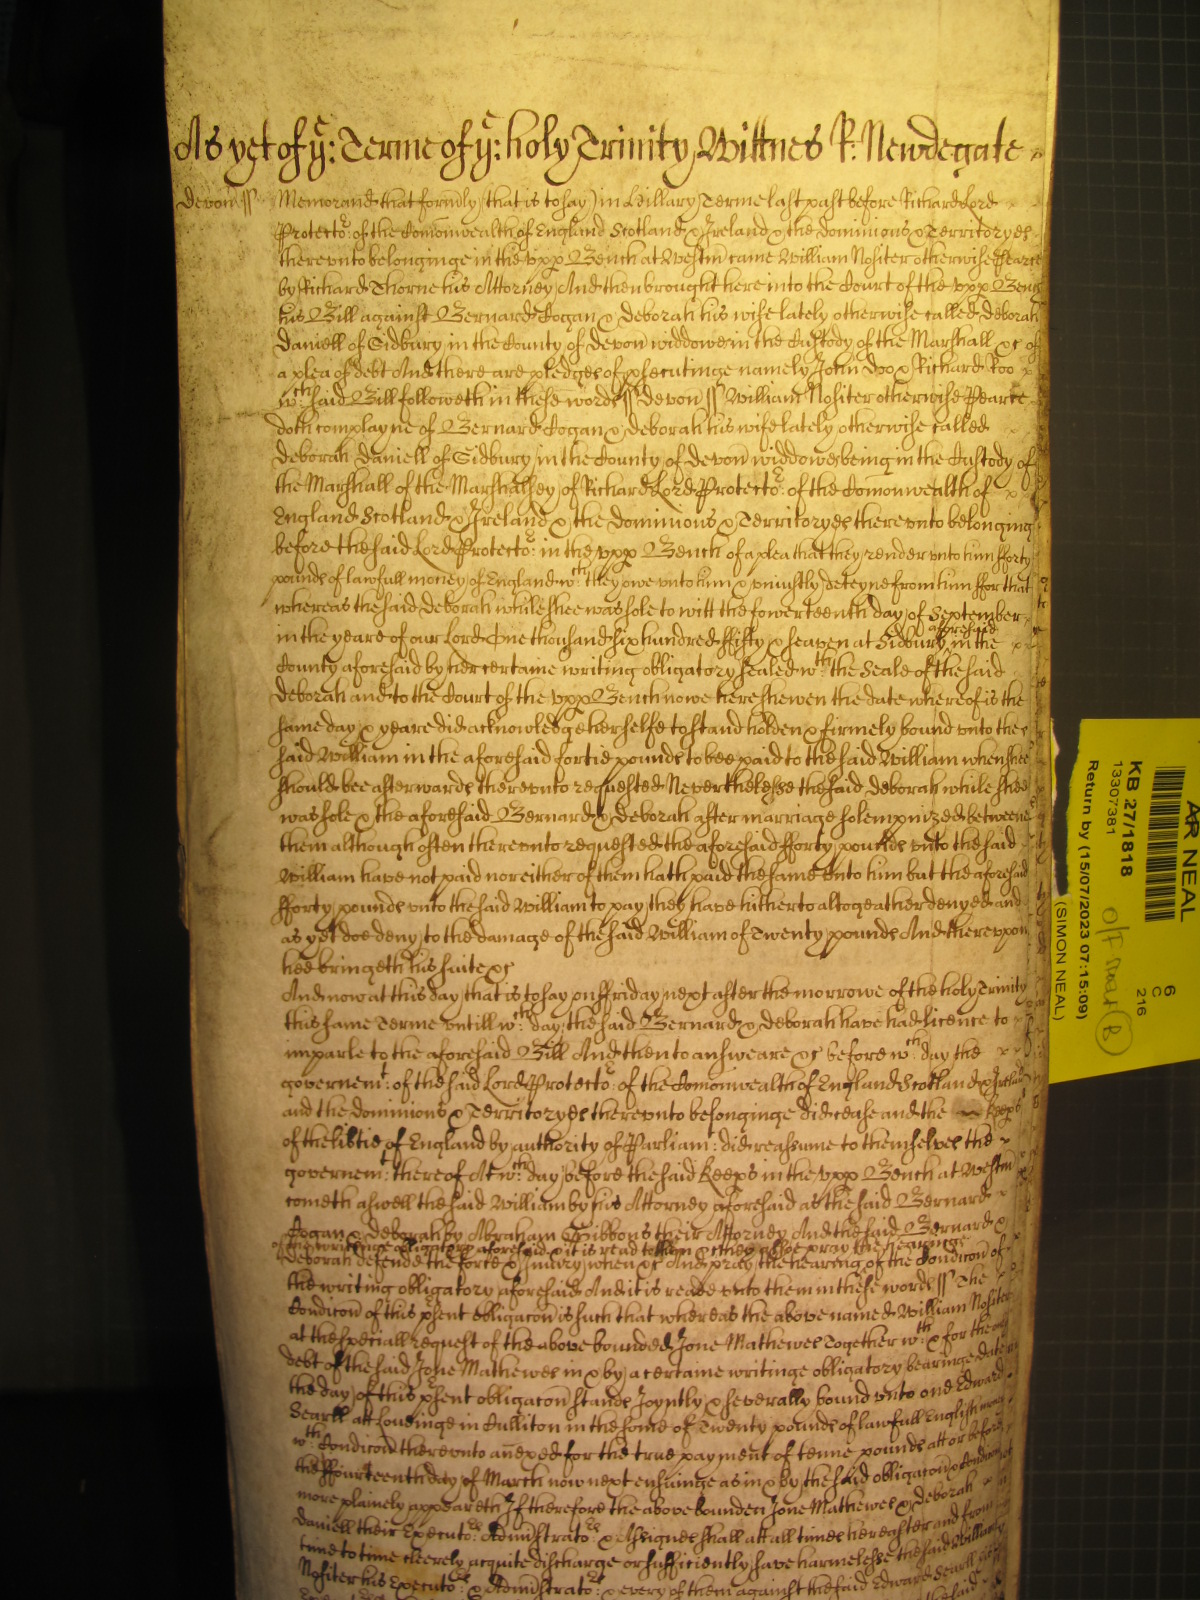 As yet of ye: Terme of ye: holy Trinity Wittnes R: Newdegate
Devon ss Memorand that formerly (that is to say) in Hillary Terme last past before Richard Lord
Protector: of the Comonwealth of England Scotland & Ireland & the dominions & Territoryes
thereunto belonginge in the upp Bench at Westm came William Nositer otherwise Pearce
by Richard Thorne his Attorney And then brought here into the Court of the upp Bench
his Bill against Bernard Cogan & Deborah his wife lately otherwise called Deborah
Daniell of Sidbury in the County of Devon widdowe in the Custody of the Marshall &c of
a plea of debt And there are pledges of psecutinge namely John Doo & Richard Roo
wch: said Bill followeth in these words ss Devon ss William Nositer otherwise Pearce
doth complayne of Bernard Cogan & Deborah his wife lately otherwise called
Deborah Daniell of Sidbury in the County of Devon widdowe being in the Custody of
the Marshall of the Marshalsey of Richard Lord Protector: of the Comonwealth of
England Scotland & Ireland & the dominions & Territoryes thereunto belonging
before the said Lord Protector: in the upp Bench of a plea that they render unto him fforty
pounds of lawfull money of England wch: they owe unto him & uniustly deteyne from him ffor that
whereas the said Deborah while shee was sole to witt the fowerteenth day of September
in the yeare of our Lord One thousand six hundred ffifty & seaven at Sidbury aforesaid in the
County aforesaid by her certaine writing obligatory sealed wth: the Seale of the said
Deborah and to the Court of the upp Bench nowe here shewen the date whereof is the
same day & yeare did acknowledge herselfe to stand holden & firmely bound unto the
said William in the aforesaid fortie pounds to bee paid to the said William when shee
should bee afterwards thereunto requested Neverthelesse the said Deborah while shee
was sole & the aforesaid Bernard & Deborah after marriage solempnized betweene
them although often thereunto requested the aforesaid fforty pounds unto the said
William have not paid nor either of them hath paid the same unto him but the aforesaid
fforty pounds unto the said William to pay they have hitherto altogeather denyed and
as yet doe deny to the damage of the said William of Twenty pounds And thereupon
hee bringeth his suite &c
And now at this day that is to say on ffriday next after the morrowe of the holy Trinity
this same Terme untill wch: day the said Bernard & Deborah have had licence to
imparle to the aforesaid Bill And then to answeare &c before wch: day the
governemt: of the said Lord Protector: of the Comonwealth of England Scotland & Ireland
and the dominions & Territoryes thereunto belonginge did cease and the Keeps
of the libtie of England by authority of Parliamt: did reassume to themselves the
governemt: thereof At wch: day before the said Keeps in the upp Bench at Westm
cometh aswell the said William by his Attorney aforesaid as the said Bernard
Cogan & Deborah by Abraham Gibbons their Attorney And the said Bernard &
of the writinge obligatory aforesaid & it is read to them & they alsoe pray the hearinge
Deborah defende the force & Iniury when &c And pray the hearing of the Condicon of
the writing obligatory aforesaid And it is reade unto them in these words ss The
Condicon of this psent obligacon is such that whereas the above named William Nositer
at the speciall request of the above bounded Jone Mathewes Together wth: & for the
debt of the said Jone Mathewes in & by a certaine writinge obligatory bearinge date
the day of this psent obligacon stands Joyntly & severally bound unto one Edward
Searll att in Culliton in the some of Twenty pounds of lawfull English
wth: Condicon thereunto anexed for the true payment of tenne pounds att or before
the ffourteenth day of March now next ensuinge as in & by the said obligacon & Condicon
more plainely appeareth If therefore the above bounden Jone Mathewes & Deborah
Daniell their Executors: Administrators & Assignes shall att all times hereafter and from
time to time cleerely acquite discharge or sufficiently save harmelesse the said William
Nositer his Executors: & Administrators: & every of them against the said Edward Searll
AR NEAL
6
C
216
KB 27/1818
13307381
Return by (15/07/2023 07:15:09)
(SIMON NEAL)